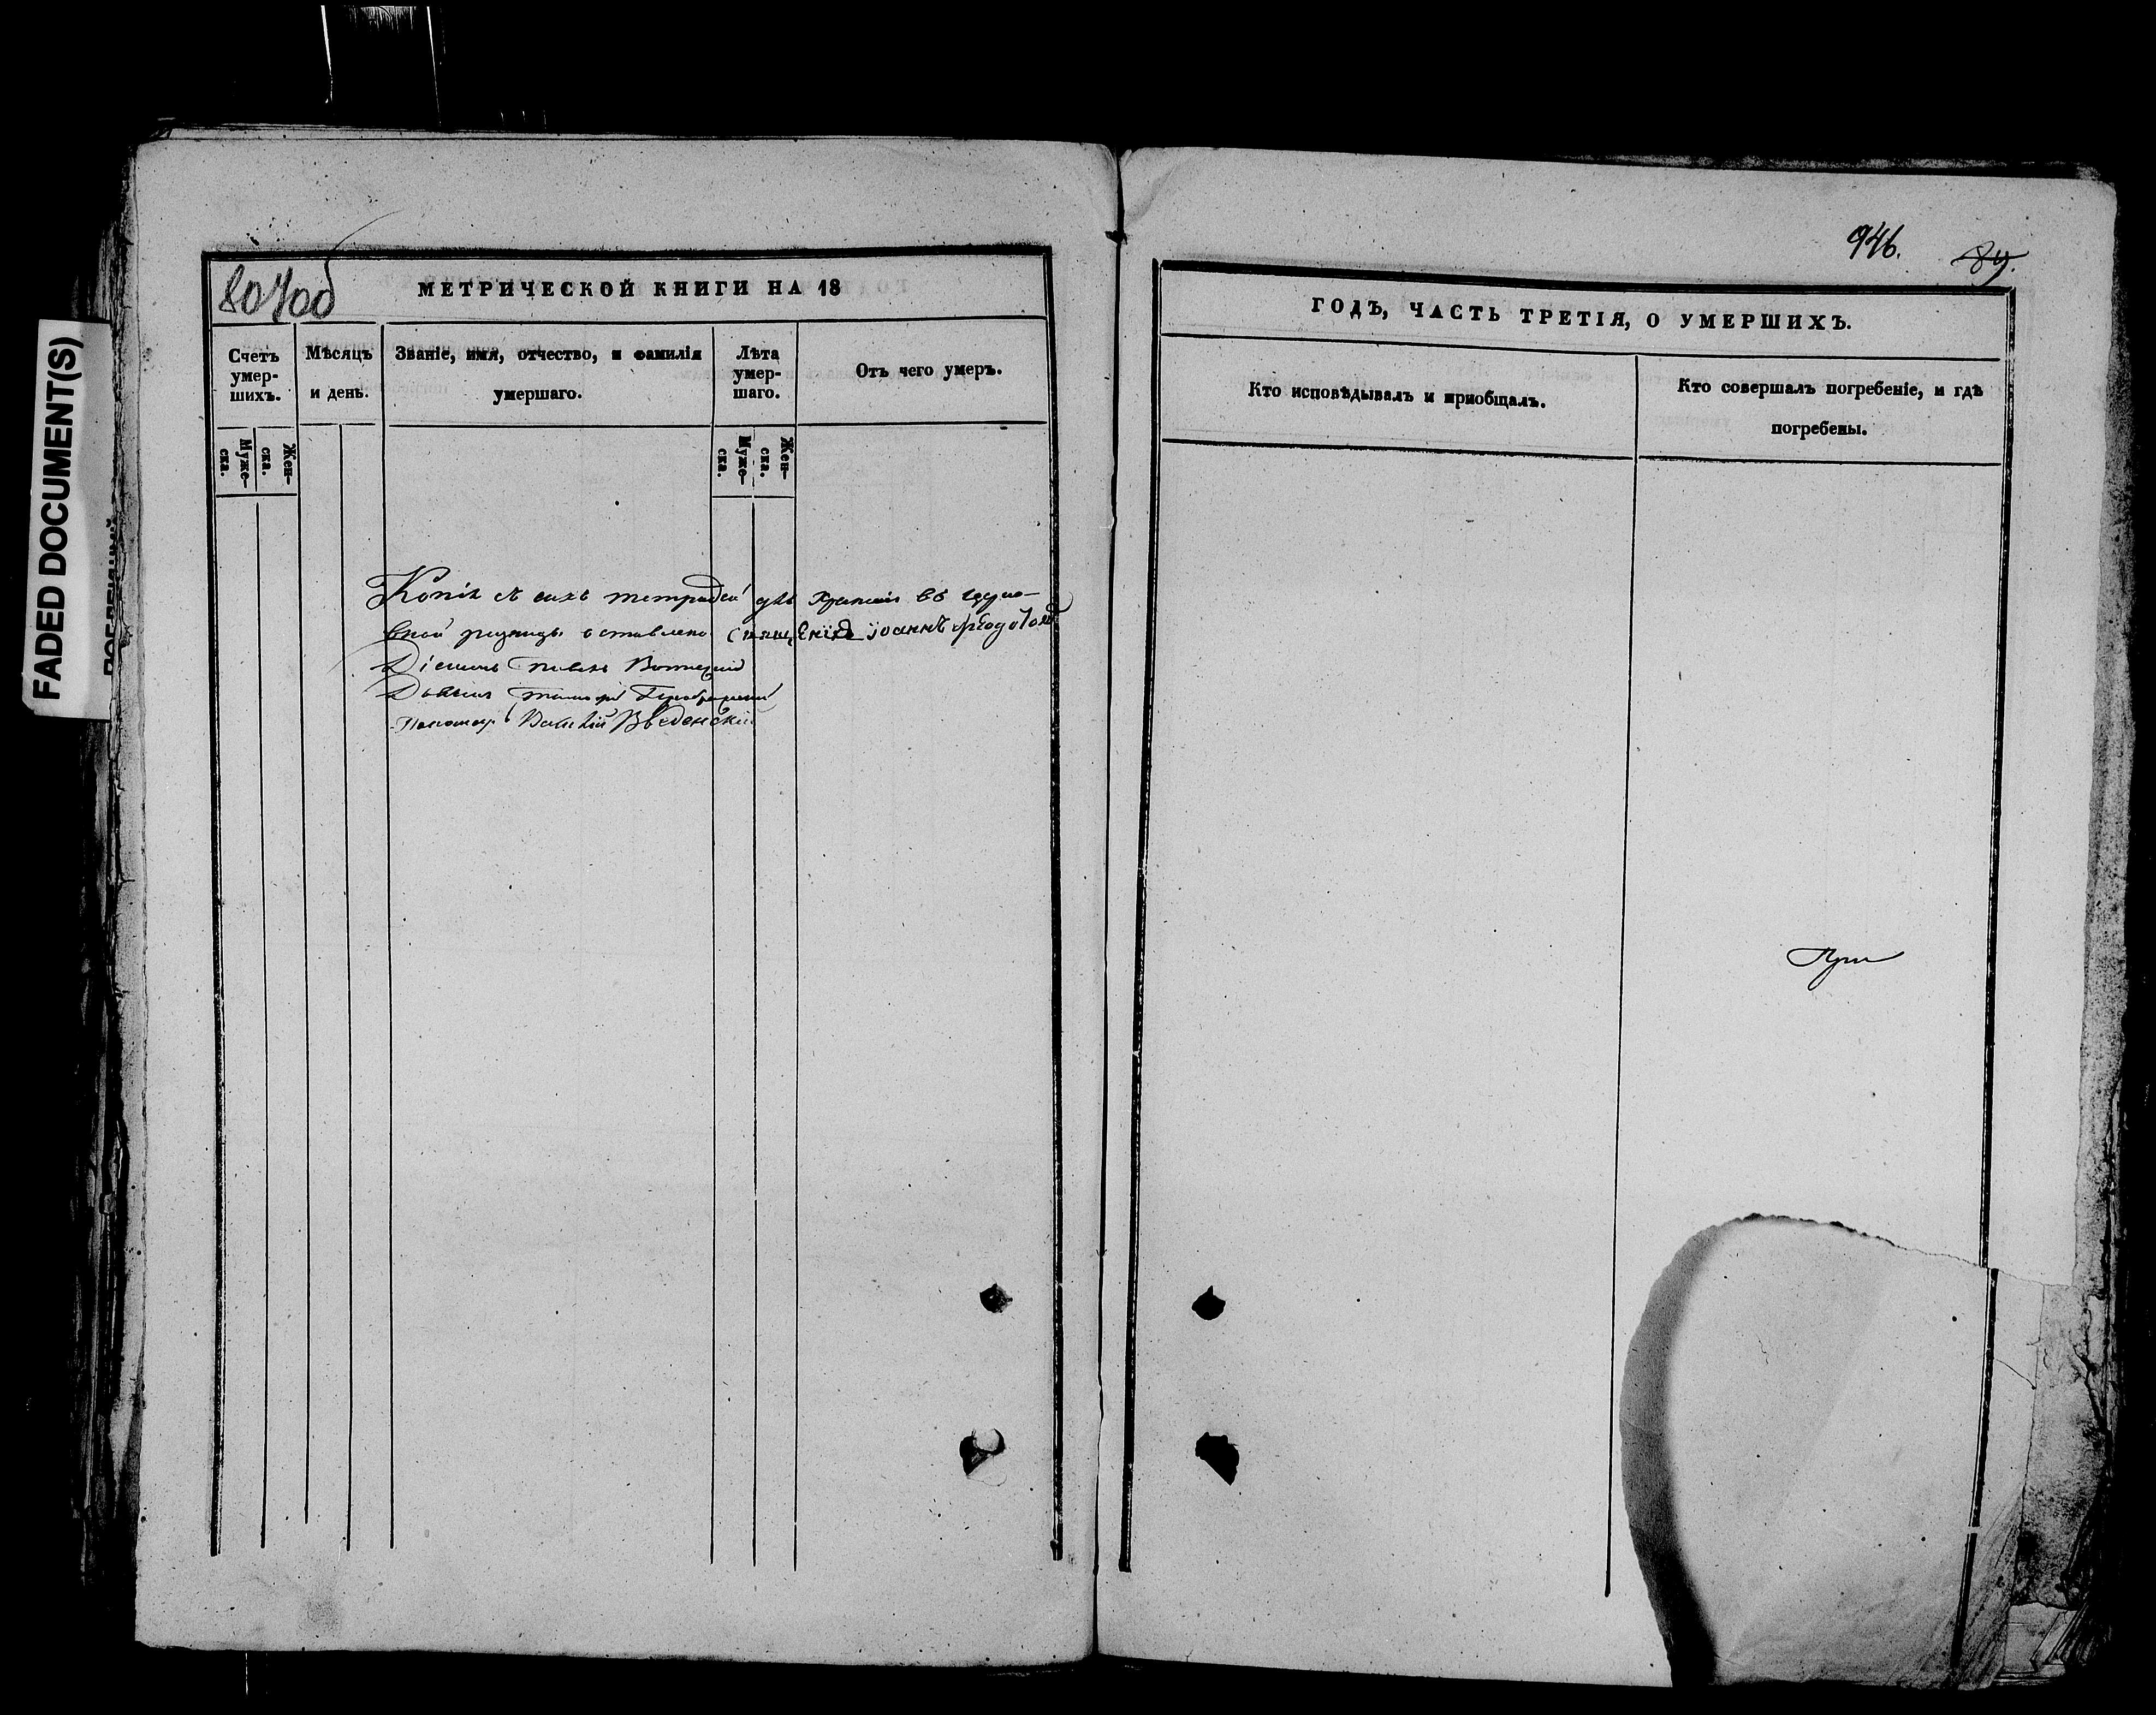 FADED DOCUMENT(S)
МЕТРИЧЕСКОЙ КНИГИ НА 18
Счетъ умер-шихъ.
Мѣсяцъ и день.
Званіе, имя, отчество, и фамилія умершаго.
Лѣта умер-шаго.
Отъ чего умеръ.
Муже-ска.
Жен-ска.
Муже-ска.
Жен-ска.
Копія съ сихъ тетрадей для храненія въ
оставлена Священникъ Іоаннъ
Павелъ
Пономарь Василій Введенскій
946.
89.
ГОДЪ, ЧАСТЬ ТРЕТІЯ, О УМЕРШИХЪ.
Кто исповѣдывалъ и приобщалъ.
Кто совершалъ погребеніе, и гдѣ погребены.